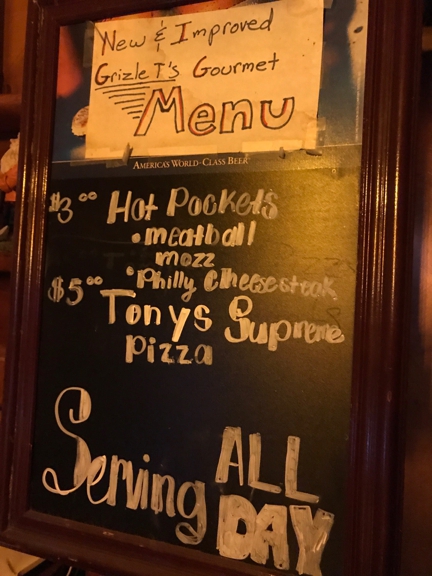 New & Improved
Grizle T's Gourmet
Menu
AMERICA'S WORLD-CLASS BEER
$3.00 Hot Pockets
• meatball
mozz
• Philly Cheesesteak
$5.00 Tonys Supreme
Pizza
Serving ALL
DAY